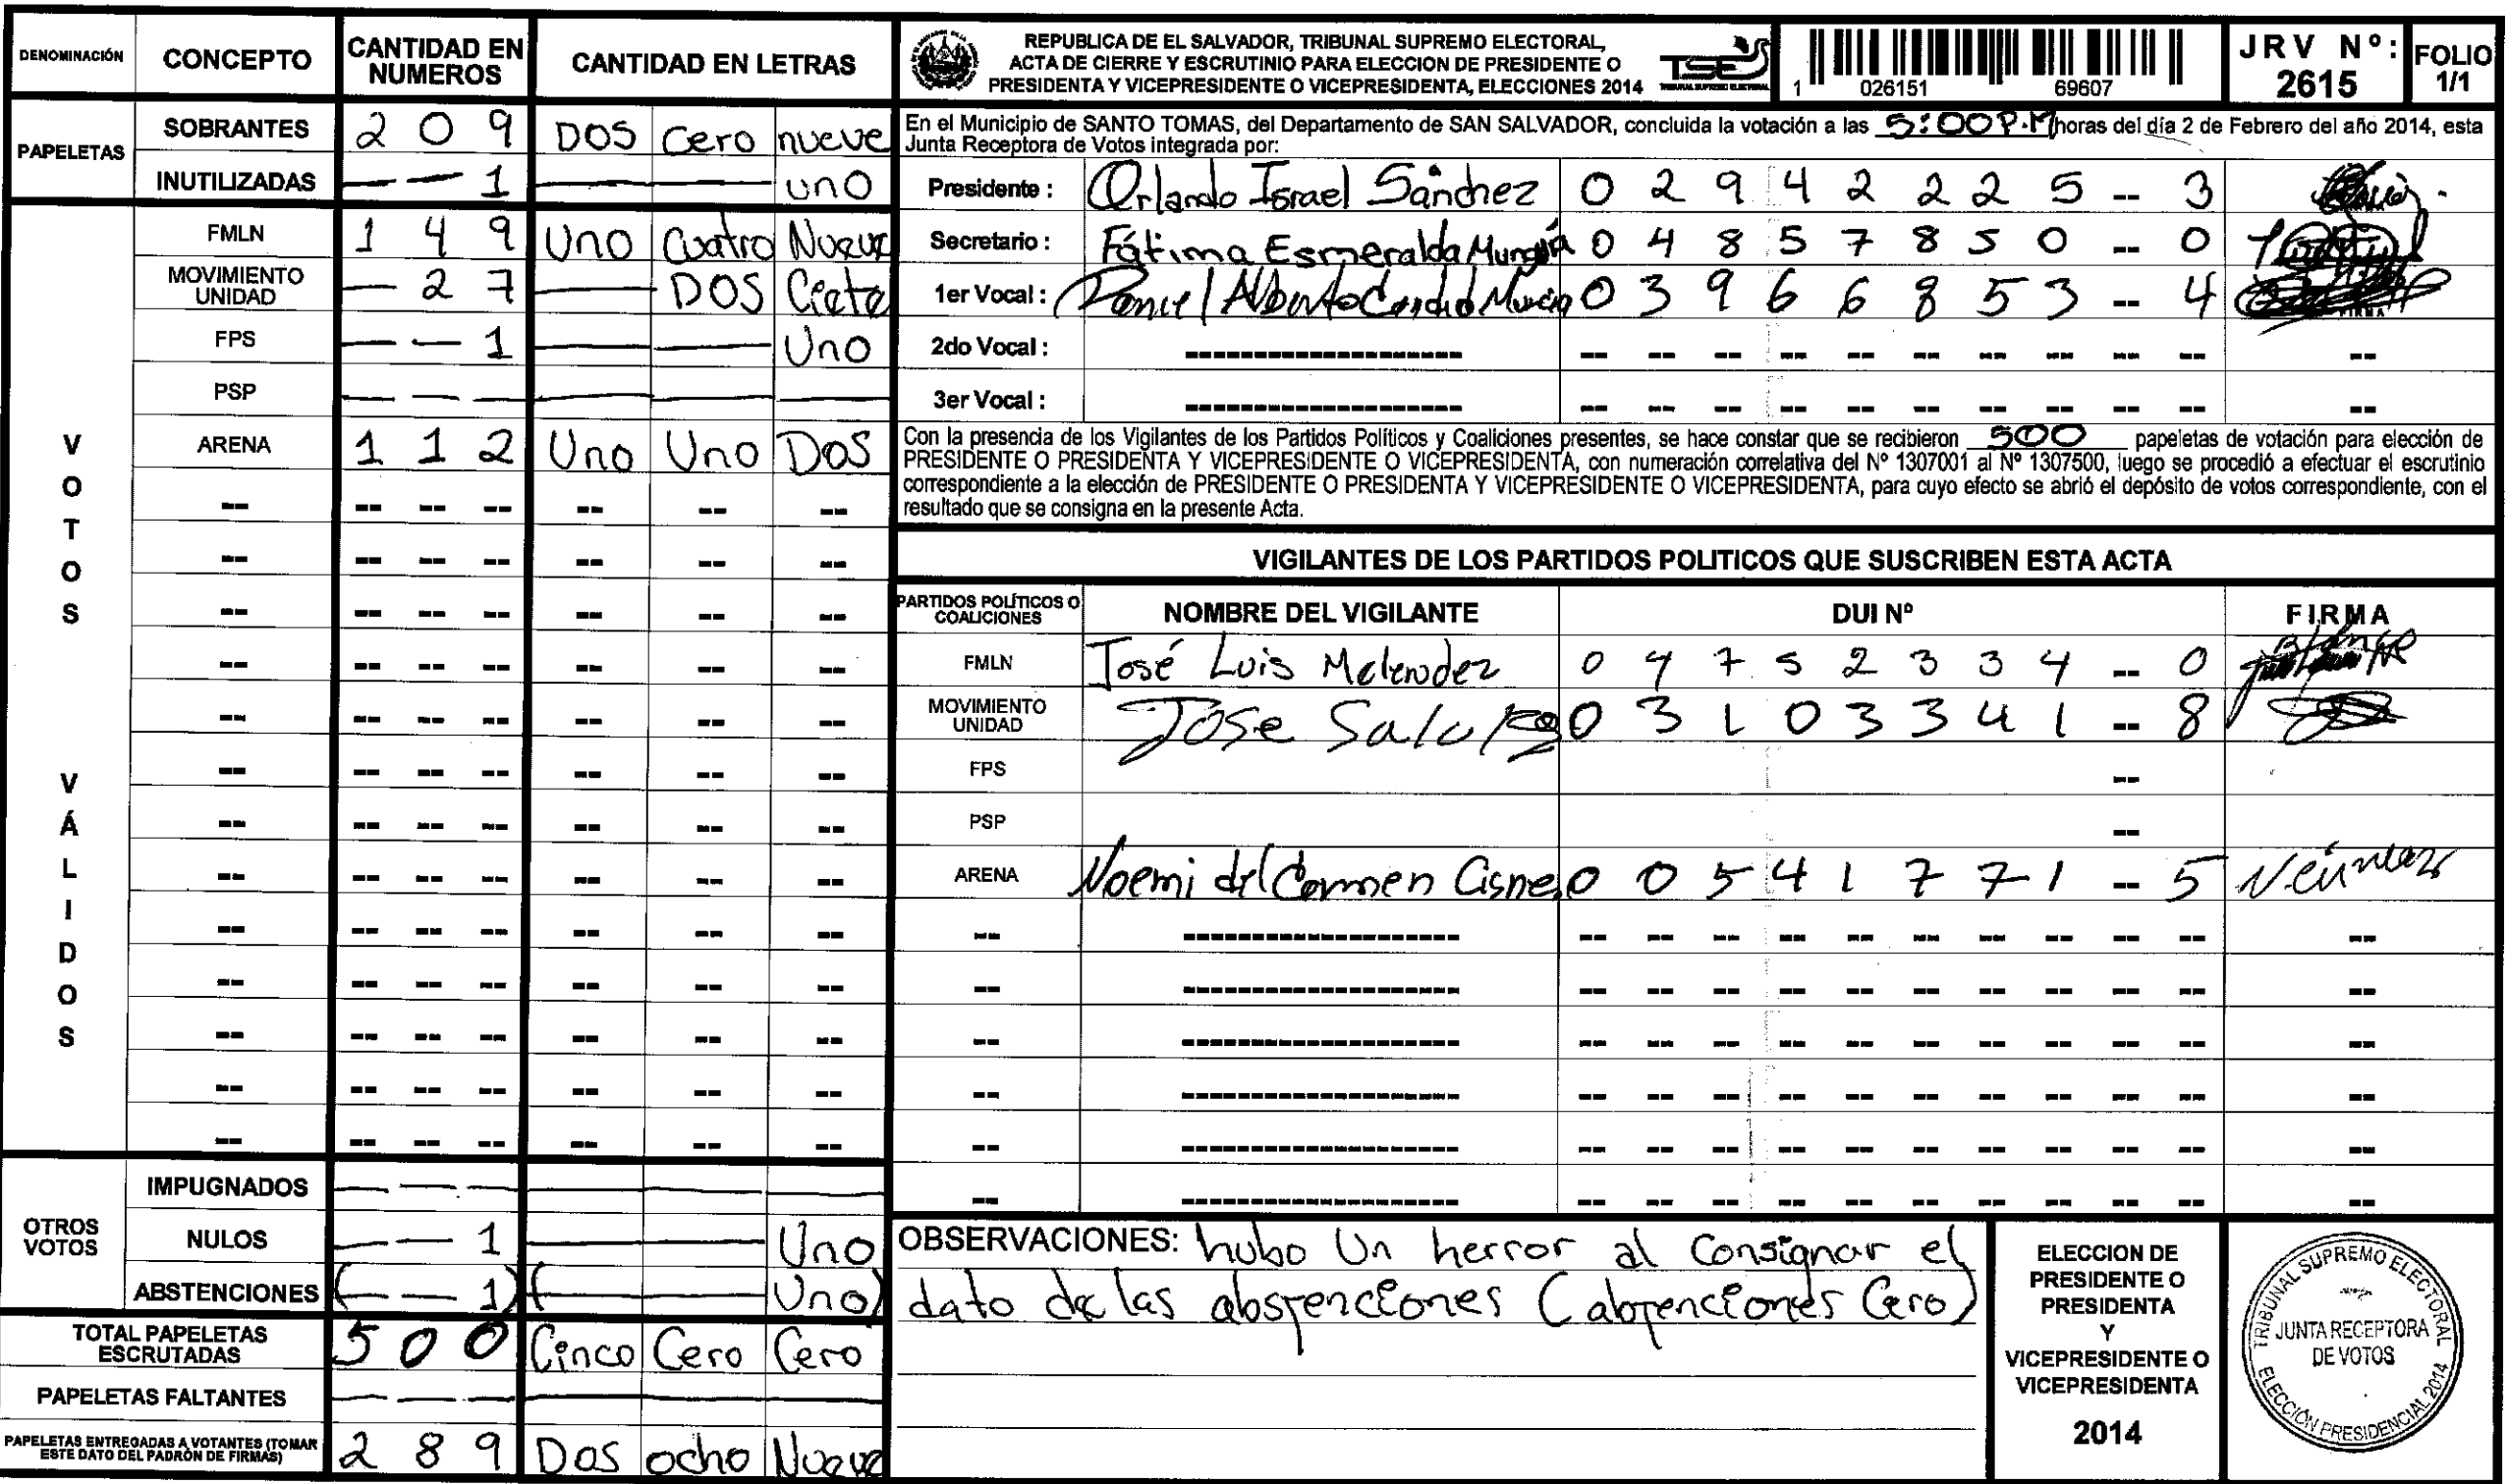 DENOMINACIÓN CONCEPTO CANTIDAD EN NUMEROS CANTIDAD EN LETRAS
PAPELETAS
SOBRANTES 2 0 9 DOS Cero nueve
INUTILIZADAS — — 1 — — uno
VOTOS VÁLIDOS
FMLN 1 4 9 Uno Cuatro Nueve
MOVIMIENTO UNIDAD — 2 7 — DOS Ciete
FPS — — 1 — — Uno
PSP — — — — — —
ARENA 1 1 2 Uno Uno Dos
-- -- -- -- -- -- --
-- -- -- -- -- -- --
-- -- -- -- -- -- --
-- -- -- -- -- -- --
-- -- -- -- -- -- --
-- -- -- -- -- -- --
-- -- -- -- -- -- --
-- -- -- -- -- -- --
-- -- -- -- -- -- --
-- -- -- -- -- -- --
-- -- -- -- -- -- --
-- -- -- -- -- -- --
-- -- -- -- -- -- --
OTROS VOTOS
IMPUGNADOS — — — — — —
NULOS — — 1 — — Uno
ABSTENCIONES (— — 1) (— — Uno)
TOTAL PAPELETAS ESCRUTADAS 5 0 0 Cinco Cero Cero
PAPELETAS FALTANTES — — — — — —
PAPELETAS ENTREGADAS A VOTANTES (TOMAR ESTE DATO DEL PADRÓN DE FIRMAS) 2 8 9 Dos ocho Nueve
REPUBLICA DE EL SALVADOR, TRIBUNAL SUPREMO ELECTORAL,
ACTA DE CIERRE Y ESCRUTINIO PARA ELECCION DE PRESIDENTE O
PRESIDENTA Y VICEPRESIDENTE O VICEPRESIDENTA, ELECCIONES 2014
TSE
TRIBUNAL SUPREMO ELECTORAL
1 026151 69607
JRV Nº: 2615
FOLIO 1/1
En el Municipio de SANTO TOMAS, del Departamento de SAN SALVADOR, concluida la votación a las 5:00 P.M horas del día 2 de Febrero del año 2014, esta
Junta Receptora de Votos integrada por:
Presidente : Orlando Israel Sánchez 0 2 9 4 2 2 2 5 -- 3
Secretario : Fátima Esmeralda Munguía 0 4 8 5 7 8 5 0 -- 0
1er Vocal : Alberto 0 3 9 6 6 8 5 3 -- 4
2do Vocal : -------------------- -- -- -- -- -- -- -- -- -- -- --
3er Vocal : -------------------- -- -- -- -- -- -- -- -- -- -- --
Con la presencia de los Vigilantes de los Partidos Políticos y Coaliciones presentes, se hace constar que se recibieron 500 papeletas de votación para elección de
PRESIDENTE O PRESIDENTA Y VICEPRESIDENTE O VICEPRESIDENTA, con numeración correlativa del Nº 1307001 al Nº 1307500, luego se procedió a efectuar el escrutinio
correspondiente a la elección de PRESIDENTE O PRESIDENTA Y VICEPRESIDENTE O VICEPRESIDENTA, para cuyo efecto se abrió el depósito de votos correspondiente, con el
resultado que se consigna en la presente Acta.
VIGILANTES DE LOS PARTIDOS POLITICOS QUE SUSCRIBEN ESTA ACTA
PARTIDOS POLÍTICOS O COALICIONES NOMBRE DEL VIGILANTE DUI Nº FIRMA
FMLN José Luis Melendez 0 4 7 5 2 3 3 4 -- 0
MOVIMIENTO UNIDAD Jose 0 3 1 0 3 3 4 1 -- 8
FPS --
PSP --
ARENA Noemi del Carmen 0 0 5 4 1 7 7 1 -- 5
-- -------------------- -- -- -- -- -- -- -- -- -- -- --
-- -------------------- -- -- -- -- -- -- -- -- -- -- --
-- -------------------- -- -- -- -- -- -- -- -- -- -- --
-- -------------------- -- -- -- -- -- -- -- -- -- -- --
-- -------------------- -- -- -- -- -- -- -- -- -- -- --
-- -------------------- -- -- -- -- -- -- -- -- -- -- --
OBSERVACIONES: hubo Un herror al Consignar el
dato de las abstenciones (abtenciones Cero)
ELECCION DE
PRESIDENTE O
PRESIDENTA
Y
VICEPRESIDENTE O
VICEPRESIDENTA
2014
TRIBUNAL SUPREMO ELECTORAL
JUNTA RECEPTORA
DE VOTOS
ELECCIÓN PRESIDENCIAL 2014